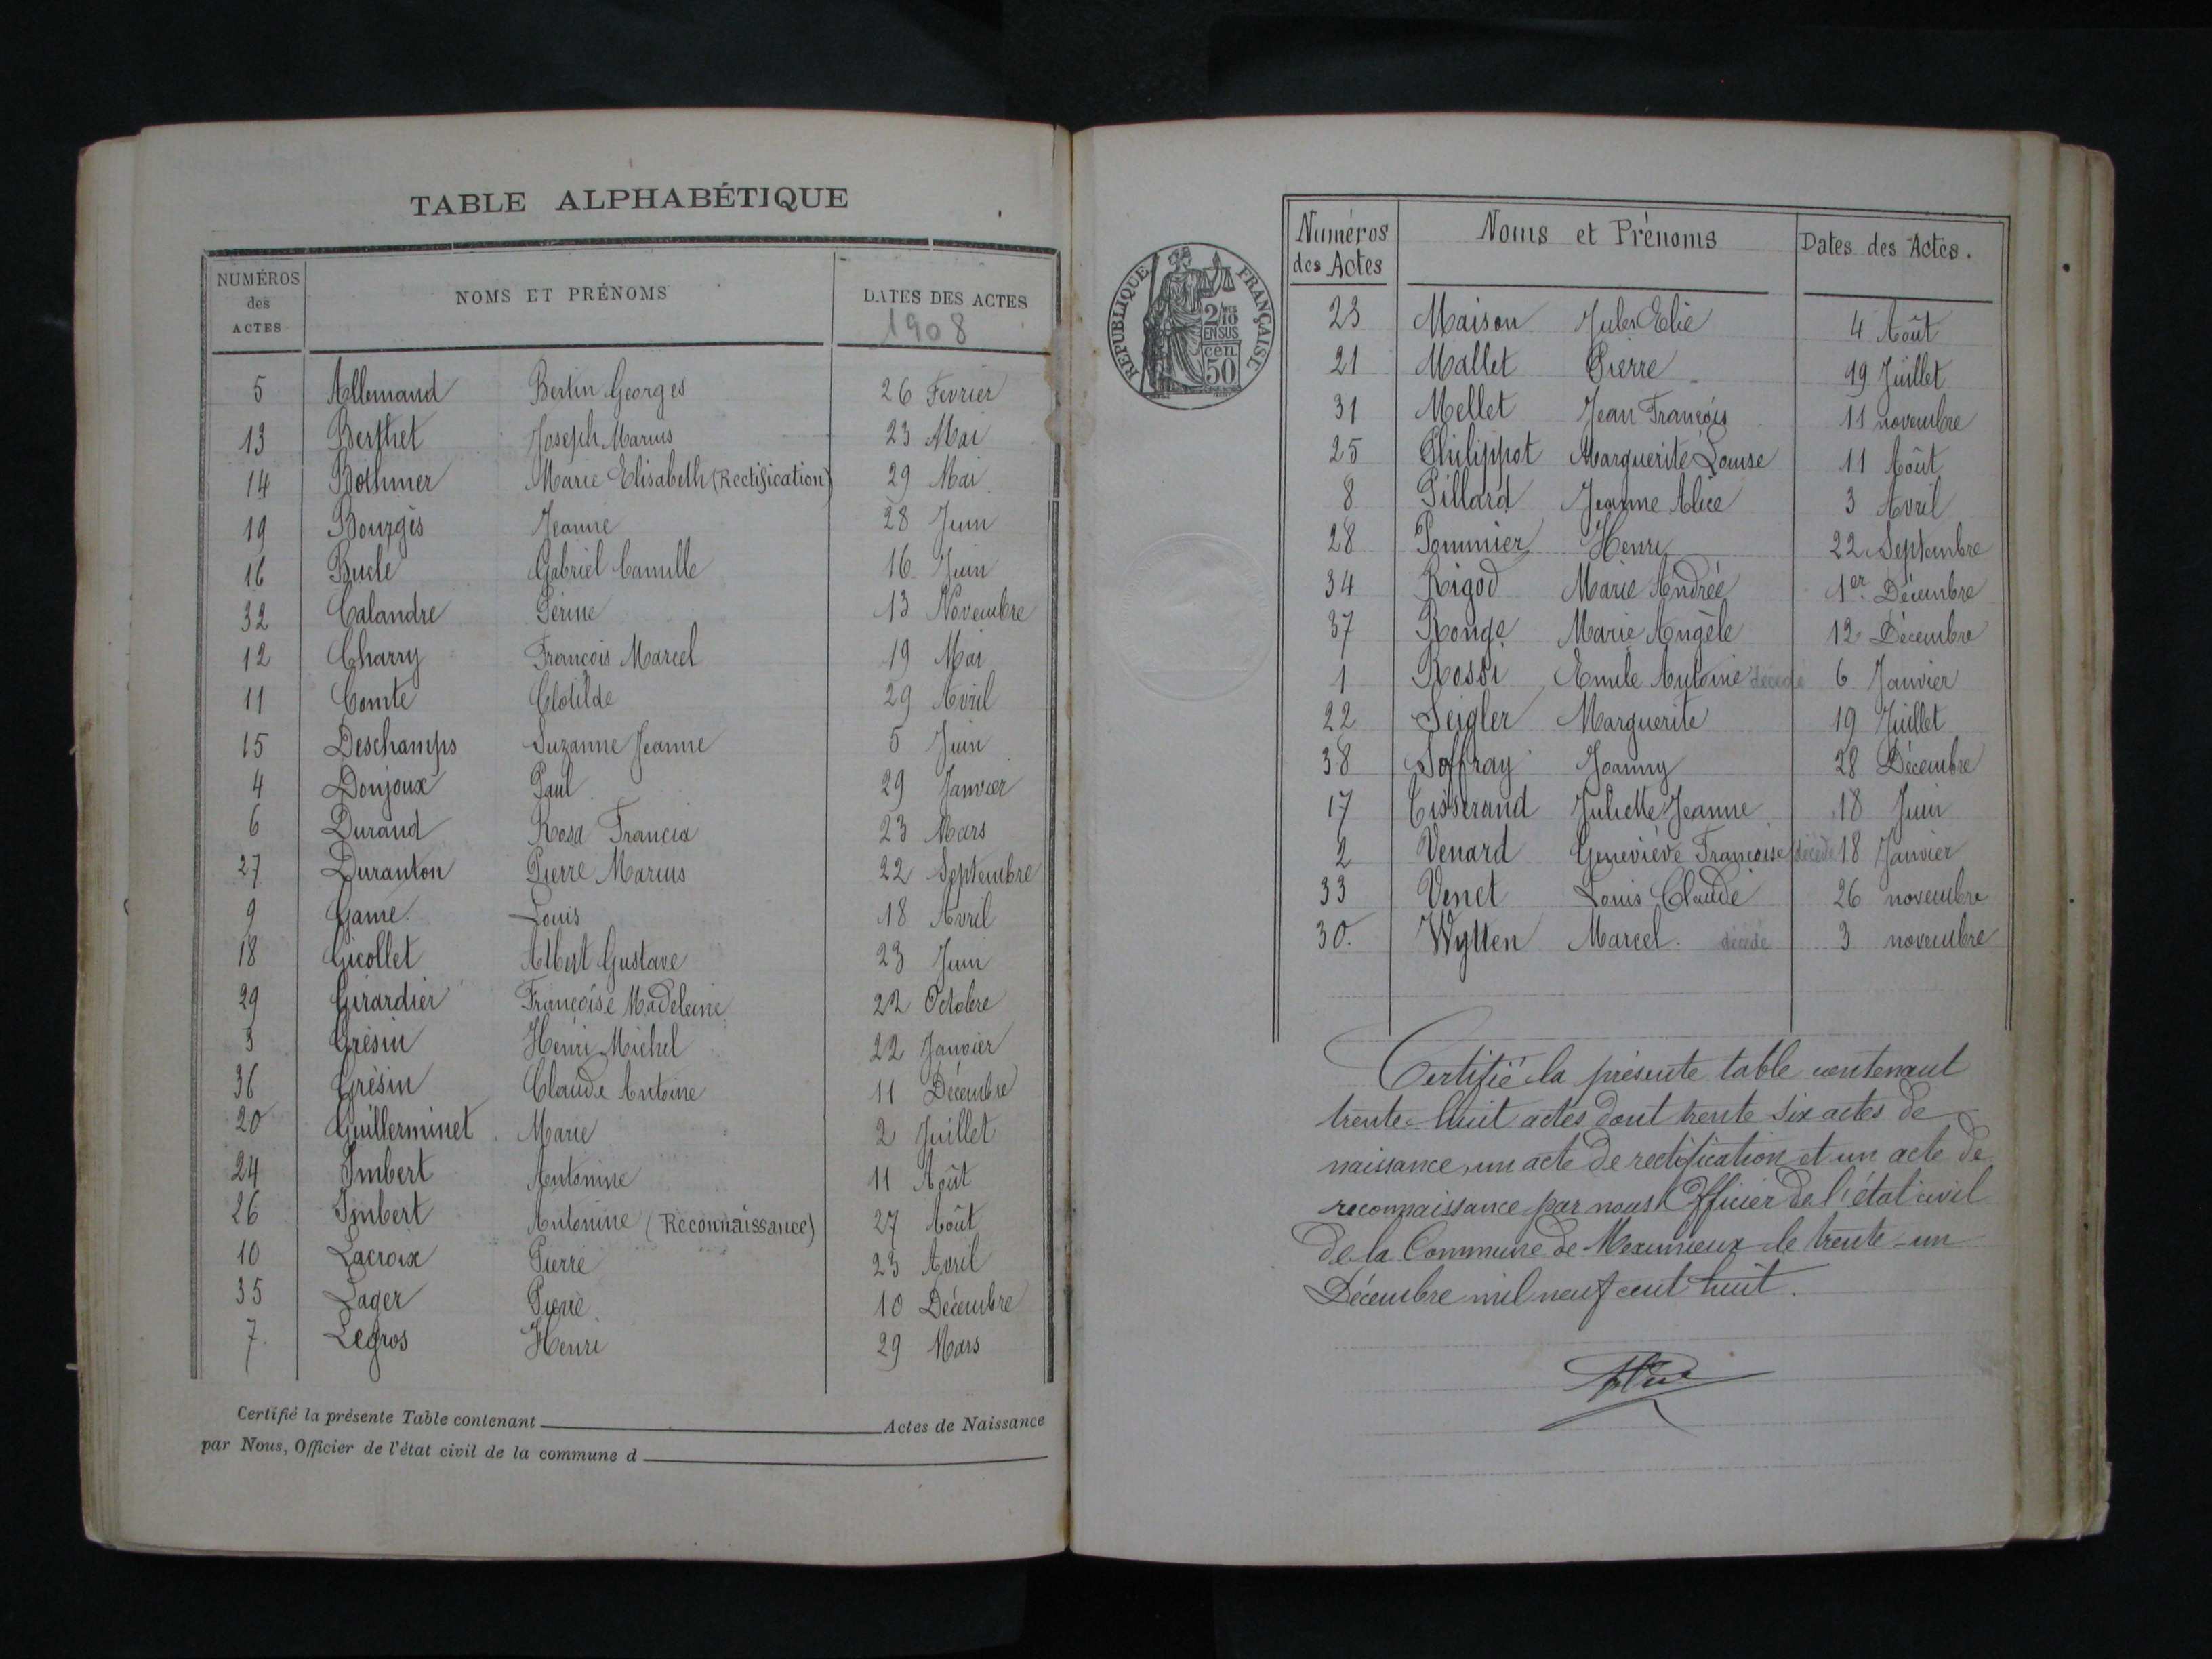 TABLE ALPHABÉTIQUE
NUMÉROS des ACTES NOMS ET PRÉNOMS DATES DES ACTES
1908
5 Allemand Bertin Georges 26 Fevrier
13 Berthet Joseph Marius 23 Mai
14 Bothmer Marie Elisabeth (Rectification) 29 Mai
19 Bourgès Jeanne 28 Juin
16 Buclé Gabriel Camille 16 Juin
32 Calandre Périne 13 Novembre
12 Charry François Marcel 19 Mai
11 Comte Clotilde 29 Avril
15 Deschamps Suzanne Jeanne 5 Juin
4 Donjoux Paul 29 Janvier
6 Durand Rosa Francia 23 Mars
27 Duranton Pierre Marius 22 Septembre
9 Game Louis 18 Avril
18 Gicollet Albert Gustave 23 Juin
29 Girardier Françoise Madeleine 22 Octobre
3 Grésin Henri Michel 22 Janvier
36 Grésin Claude Antoine 11 Décembre
20 Guillerminet Marie 2 Juillet
24 Imbert Antonine 11 Août
26 Imbert Antonine (Reconnaissance) 27 Août
10 Lacroix Pierre 23 Avril
35 Lager Pierre 10 Décembre
7. Legros Henri 29 Mars
Certifié la présente Table contenant Actes de Naissance
par Nous, Officier de l'état civil de la commune d
REPUBLIQUE FRANÇAISE
2/10 EN SUS
cen. 50
Numéros des Actes Noms et Prénoms Dates des Actes.
23 Maison Jules Elie 4 Août
21 Mallet Pierre 19 Juillet
31 Mellet Jean François 11 novembre
25 Philippot Marguerite Louise 11 Août
8 Pillard Jeanne Alice 3 Avril
28 Pommier Henri 22 Septembre
34 Rigod Marie Andrée 1er Décembre
37 Ronge Marie Angèle 12 Décembre
1 Rossi Emile Antoine décédé 6 Janvier
22 Seigler Marguerite 19 Juillet
38 Soffray Joanny 28 Décembre
17 Tisserand Juliette Jeanne 18 Juin
2 Venard Geneviève Françoise décédé 18 Janvier
33 Venet Louis Claude 26 novembre
30. Wytten Marcel. décédé 3 novembre
Certifié la présente table contenant
trente-huit actes dont trente six actes de
naissance, un acte de rectification et un acte de
reconnaissance par nous Officier de l'état civil
de la Commune de Meximieux le trente-un
Décembre mil neuf cent huit.